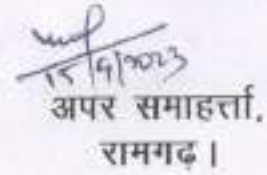 15/9/2023
अपर समाहर्त्ता,
रामगढ़।